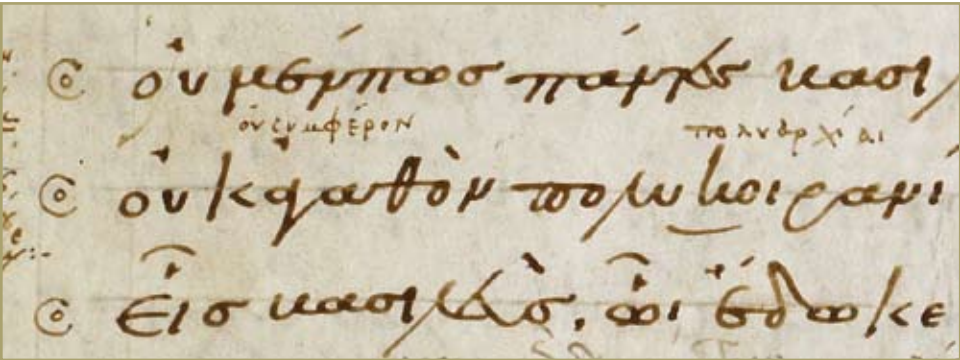 οὐ μέν πως πάντες βασι
οὐ συμφέρον πολυαρχίαι
οὐκ ἀγαθὸν πολυκοιρανί
εἷς βασιλεύς, ὧι ἔδωκε